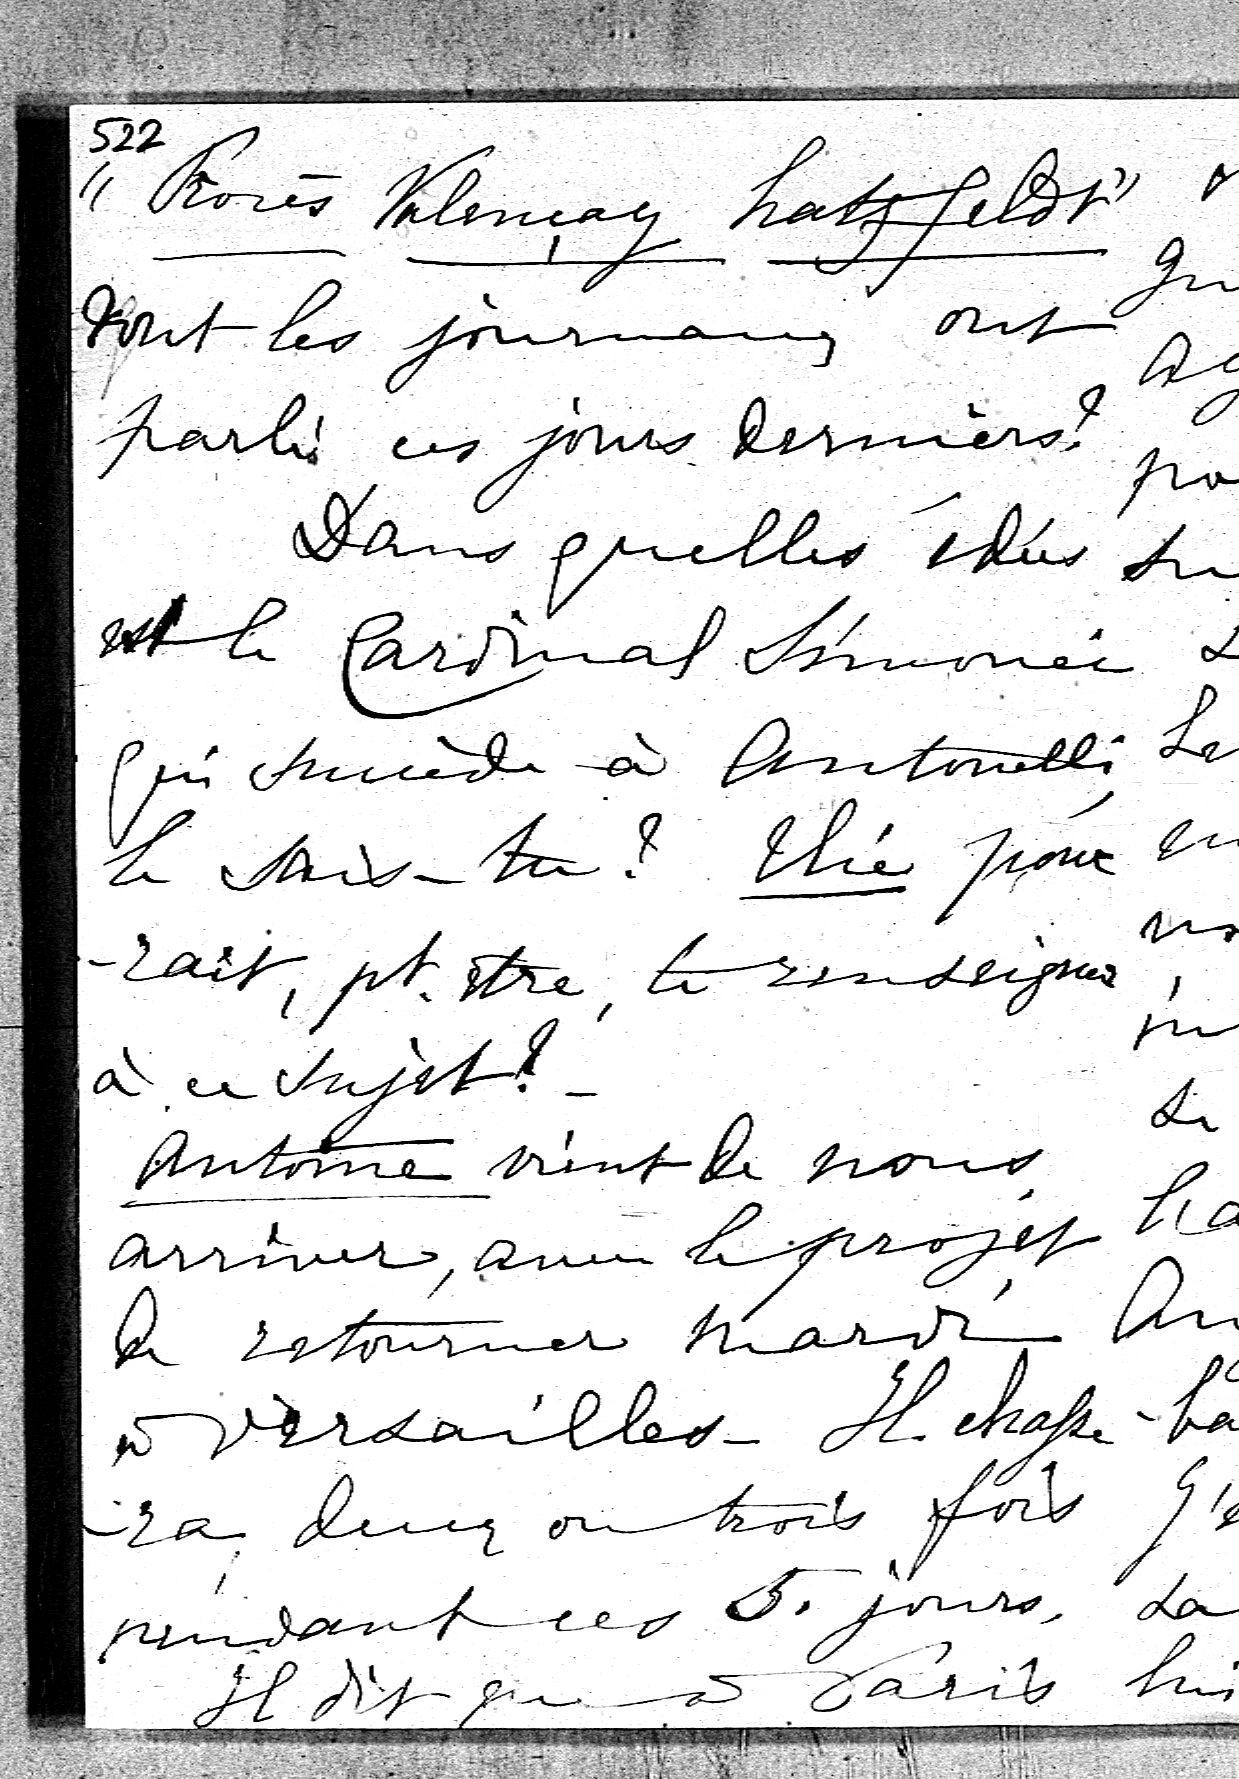 522
"Procès Valençay hatzfeldt"
dont les journaux ont
parlé ces jours derniers?
Dans quelles idées
est le Cardinal Siméonéi
qui succède à Antonelli,
le sais-tu? Thié pour
-rait, pt. être, te renseigner
à ce sujet? -
Antoine vient de nous
arriver, avec le projet
de retourner mardi
à Versailles - Il chasse-
-ra, deux ou trois fois
pendant ces 5. jours.
Il dit que à Paris